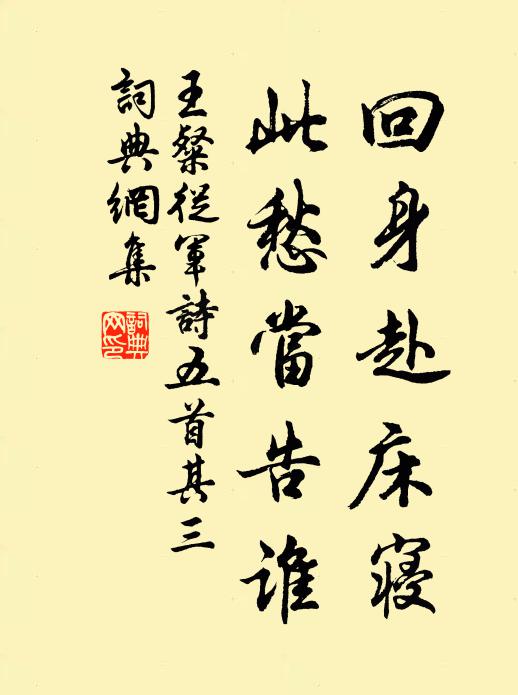 回身赴床寢
此愁當告誰
王粲從軍詩五首其三
詞典網集
詞典
网印